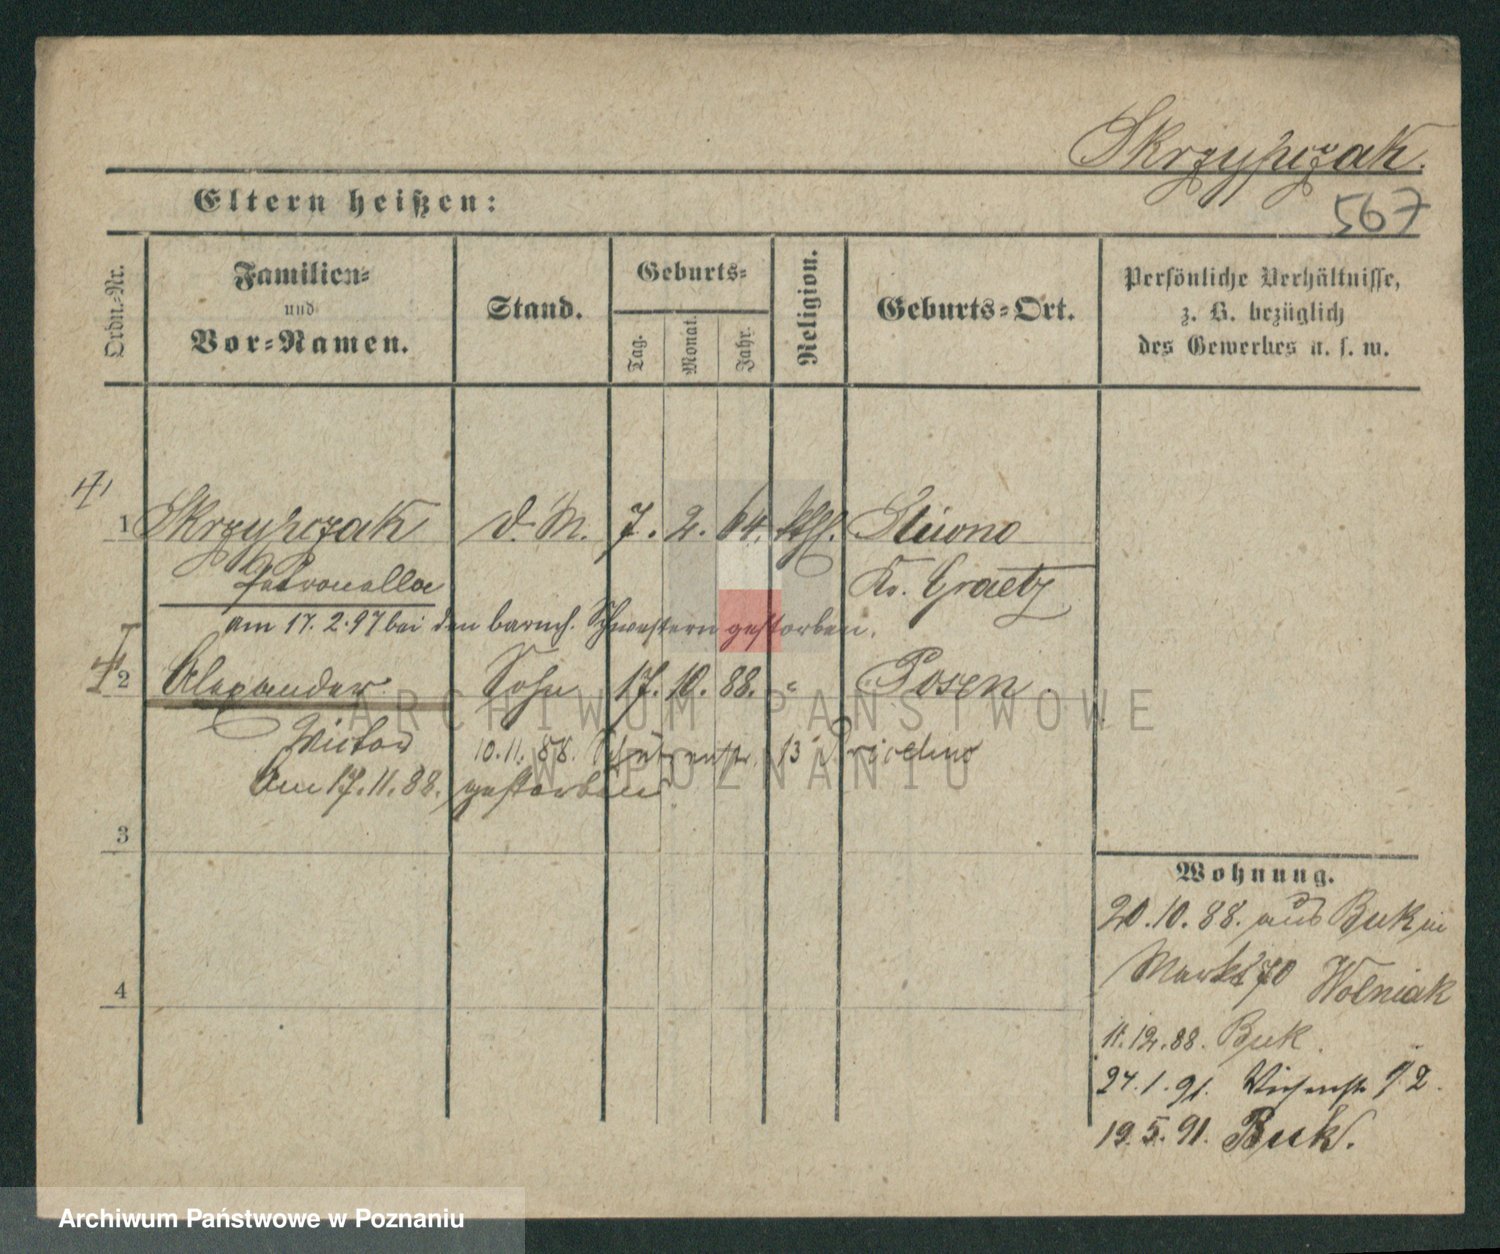 Skrzypczak.
Eltern heißen:
567
Ordn.-Nr.
Familien-
und
Vor-Namen.
Stand.
Geburts-
Tag.
Monat.
Jahr.
Religion.
Geburts-Ort.
Persönliche Verhältnisse,
z. B. bezüglich
des Gewerbes u. s. w.
1 Skrzypczak d. M. 7. 2. 64. kth.
Petronella Kr. Graetz
am 17. 2. 97 bei den barmh. Schwestern gestorben.
2 Alexander Sohn 17. 10. 88. " Posen.
Victor 10. 11. 88. Schützenstr. 13
Am 17. 11. 88. gestorben
3
4
Wohnung.
20. 10. 88. aus Buk in
Markt 70 Wolniak
11. 12. 88. Buk.
24. 1. 91. Wiesenstr 2.
19. 5. 91. Buk.
ARCHIWUM PAŃSTWOWE
W POZNANIU
Archiwum Państwowe w Poznaniu